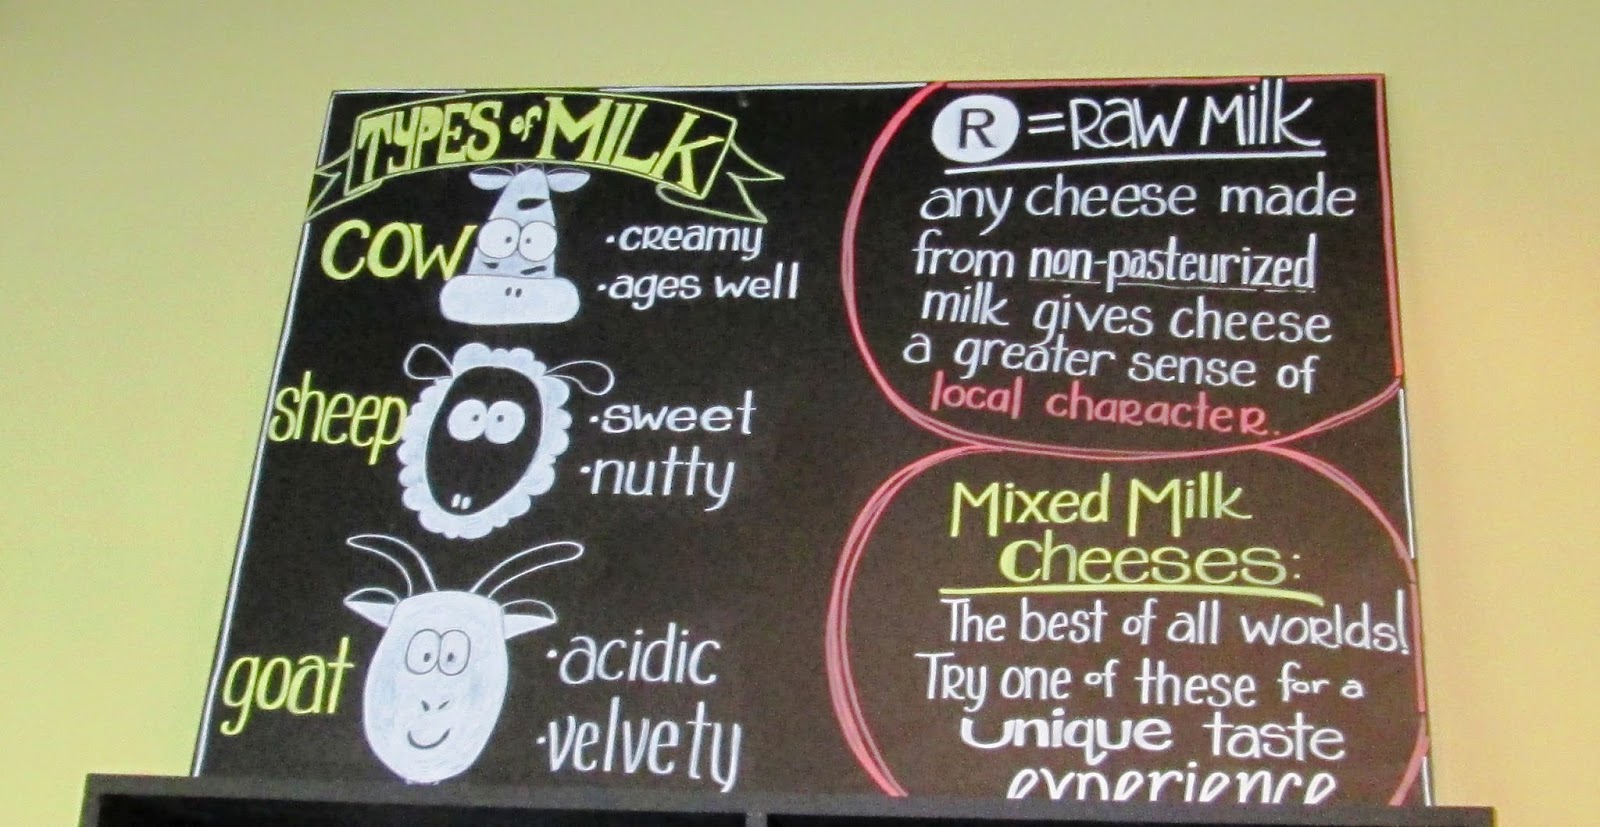 TYPES of MILK
COW
·creamy
·ages well
sheep
·sweet
·nutty
goat
·acidic
·velvety
R = RAW Milk
any cheese made
from non-pasteurized
milk gives cheese
a greater sense of
local character.
Mixed Milk
Cheeses:
The best of all worlds!
Try one of these for a
unique taste
experience